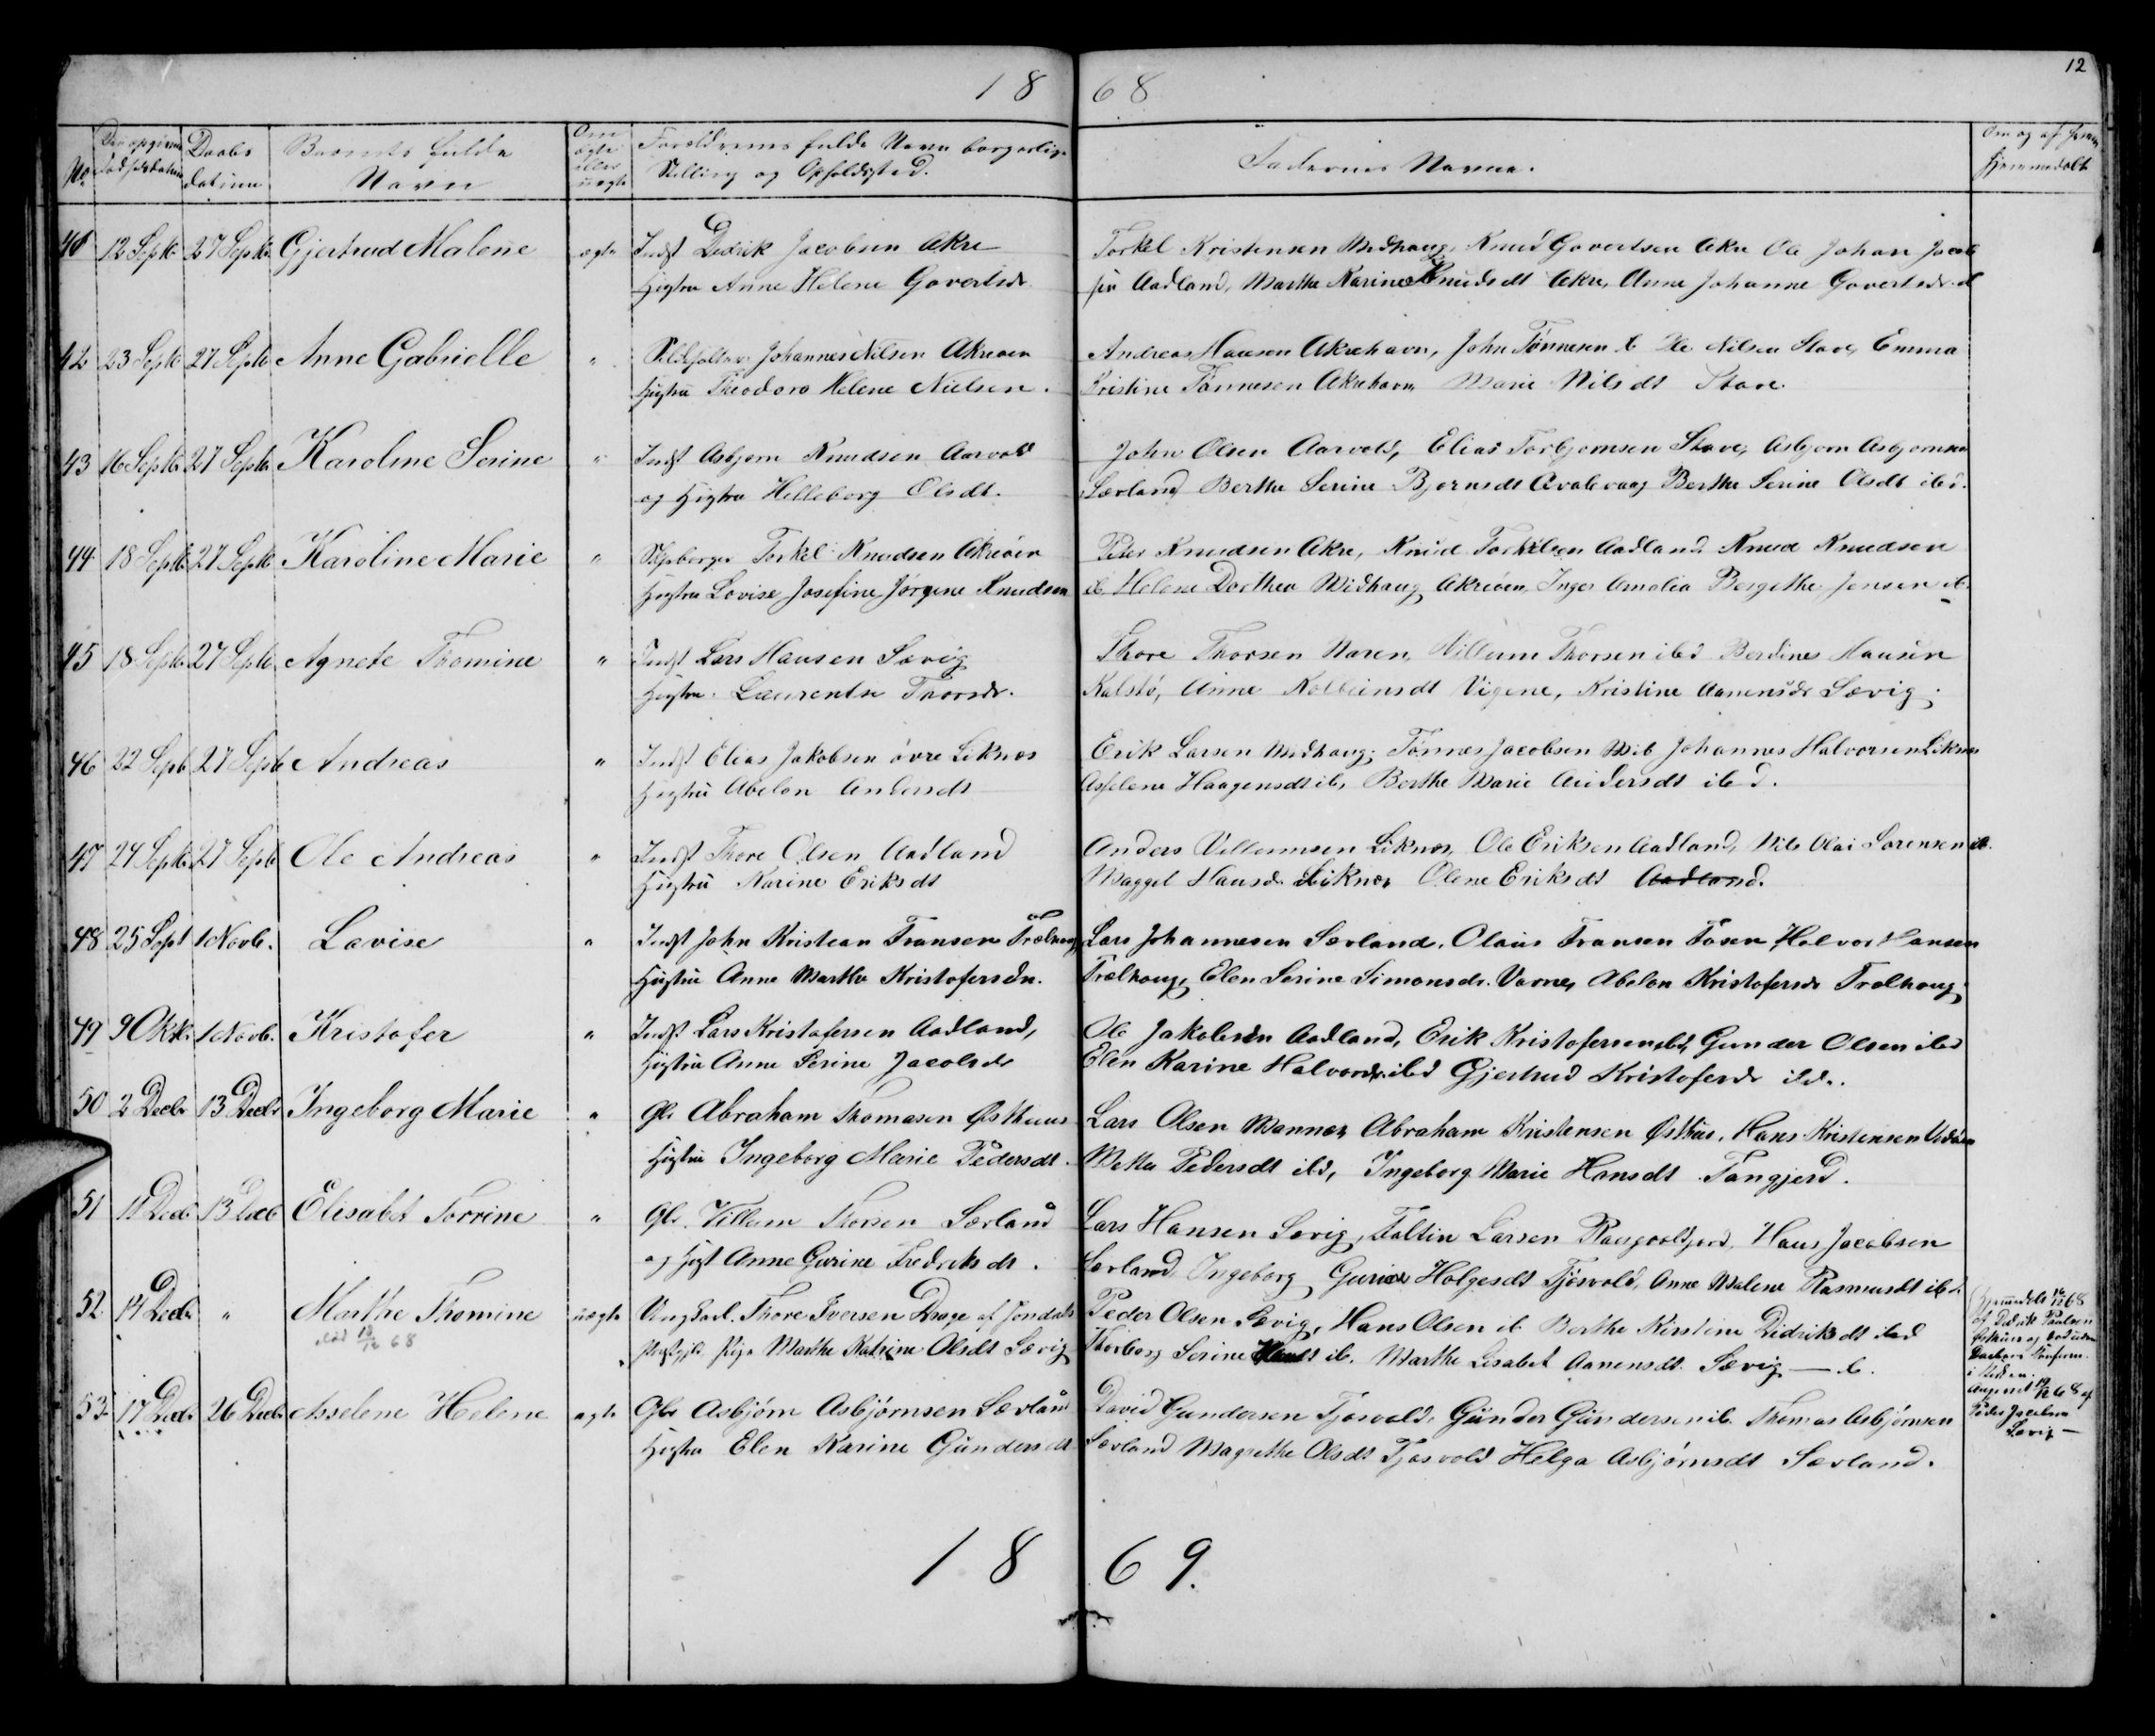 12
18 68
No Den opgivne Fødselsdatum Daabsdatum Barnets fulde Navn Om ægte eller uægte Forældrenes fulde Navn borgerlige Stilling og Opholdssted. Faddernes Navne. Om og af hvem Hjemmedøbt
41 12 Septb 27 Septb Gjertrud Malene ægte Indst Didrik Jacobsen Akre Torkel Kristensen Midhaug, Knud Govertsen Akre Ole Johan Jacob
Hustru Anne Helene Govertsdr. sen Aadland, Marthe Karine Knudsdt Akre, Anne Johanne Govertsdr
42 23 Septb 27 Septb Anne Gabrielle " Johannes Nilsen Akreøen Andreas Hansen Akrehavn, John Tønnesen ib Ole Nilsen Stave, Emma
Hustru Theodora Helene Nielsen. Kristine Tønnesen Akrehavn Marie Nilsdt Stave.
43 16 Septb 27 Septb Karoline Serine " Indst Asbjørn Knudsen Aarvold John Olsen Aarvold, Elias Torbjørnsen Stave, Asbjørn Asbjørnsen
og Hustru Helleborg Olsdt. Sævland Berthe Serine Bjørnsdt Qvalevaag Berthe Serine Olsdt ibd.
44 18 Septb 27 Septb Karoline Marie " Torkel Knudsen Akreøen Peder Knudsen Akre, Knud Torkelsen Aadland Knud Knudsen
Hustru Lovise Josefine Jørgine Knudsen ib Helene Dorthea Midhaug Akreøen, Inger Amalia Bergithe Jensen ib.
45 18 Septb 27 Septb Agnete Thomine " Indst Lars Hansen Sævig Thore Thorsen Varen, Villum Thorsen ibd Berdines Hansen
Hustru Laurentse Thorsdr. Kalstø, Anne Kolbeinsdt Vigene, Kristine Aanensdr Sævig.
46 22 Septb 27 Septb Andreas " Indst Elias Jakobsen øvre Liknæs Erik Larsen Midhaug, Tønnes Jacobsen Johannes Halvorsen Liknæs
Hustru Abelon Andersdt Asselene Haagensdt ib, Berthe Marie Andersdt ibd.
47 24 Septb 27 Septb Ole Andreas " Indst Thore Olsen Aadland Anders Villumsen Liknæs, Ole Eriksen Aadland, Nils Olai Sørensen ib.
Hustru Karine Eriksdt Magget Hansdr Liknæs Olene Eriksdt Aadland.
48 25 Sept 1 Novb. Lovise " Indst John Kristian Fransen Trælhaug Lars Johannesen Sævland, Olaus Fransen Halvor Hansen
Hustru Anne Marthe Kristofersdr. Trælhaug, Elen Serine Simonsdr. Varne, Abelon Kristofersdr Trælhaug.
49 9 Oktb. 1 Novb. Kristofer " Indst Lars Kristofersen Aadland, Ole Jakobsen Aadland, Erik Kristofersen ibd, Gunder Olsen ibd
Hustru Anne Serine Jacobsdr Elen Karine Halvorsdr. ibd Gjertrud Kristofersdr ibd.
50 2 Decbr 13 Decbr Ingeborg Marie " Gbr Abraham Thomasen Østhuus Lars Olsen Mannæs Abraham Kristensen Østhus, Hans Kristensen
Hustru Ingeborg Marie Pedersdt. Mette Pedersdt ibd, Ingeborg Marie Hansdt Tangjerd.
51 11 Decb 13 Decb Elisabet Torrine " Gbr. Villum Thorsen Sævland Lars Hansen Sævig, Faltin Larsen Hans Jacobsen
og Hust Anne Gurine Fredriksdt. Sævland, Ingeborg Gurine Holgesdt Tjøsvold, Anne Malene Rasmusdt ibd.
52 14 Decb " Marthe Thomine uægte Ungkarl. Thore Iversen Drage af Jondal Peder Olsen Sævig, Hans Olsen ib Berthe Kirstine Didriksdt ibd
død 18/12 68 Pige Marthe Katrine Olsdt Sævig Thorborg Serine ib. Marthe Lisabet Aanensdt. Sævig — ib.
Hjemmedøbt 16/12 68
af Didrik Paulsen
Østhus og død uden
Daabens Konfirm.
i Kirken.
Angivet 19/12 68 af
Peder Jacobsen
Sævig —
53 17 Decb 26 Decb Asselene Helene ægte Gbr Asbjørn Asbjørnsen Sævland David Gundersen Tjøsvold, Gunder Gundersen ib. Thomas Asbjørnsen
Hustru Elen Karine Gundersdt Sævland Magrethe Olsdt Tjøsvold Helga Asbjørnsdt Sævland.
18 69.